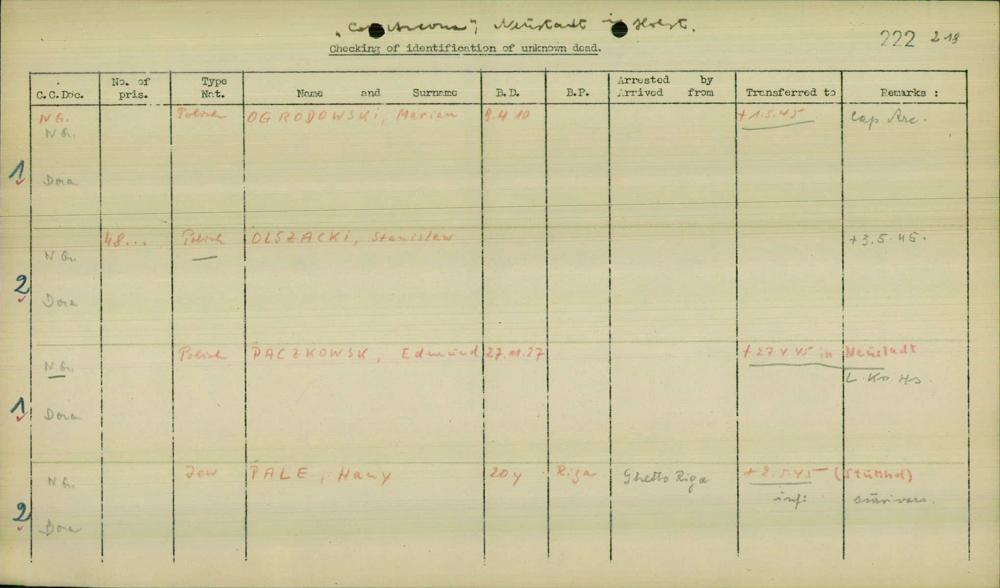 "Cap Arcona", Neustadt in Holst.
Checking of identification of unknown dead.
222 218
C.C.Doc. No. of pris. Type Nat. Name and Surname B.D. B.P. Arrested by Arrived from Transferred to Remarks :
N G. Polish OGRODOWSKI, Marian 9.4.10 +1.5.45 Cap Arc.
N G.
1 Dora
48... Polish OLSZACKI, Stanislaw +3.5.45.
N G.
2 Dora
Polish PACZKOWSK, Edmund 27.11.27 +27.V.45 in Neustadt
N G. L. Kr. Hs.
1 Dora
N G. Jew PALE, Hany 20y Riga Ghetto Riga +2.5.45 (Stutthof)
inf: survivors.
2 Dora